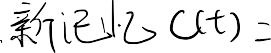 新记忆 C(t) =